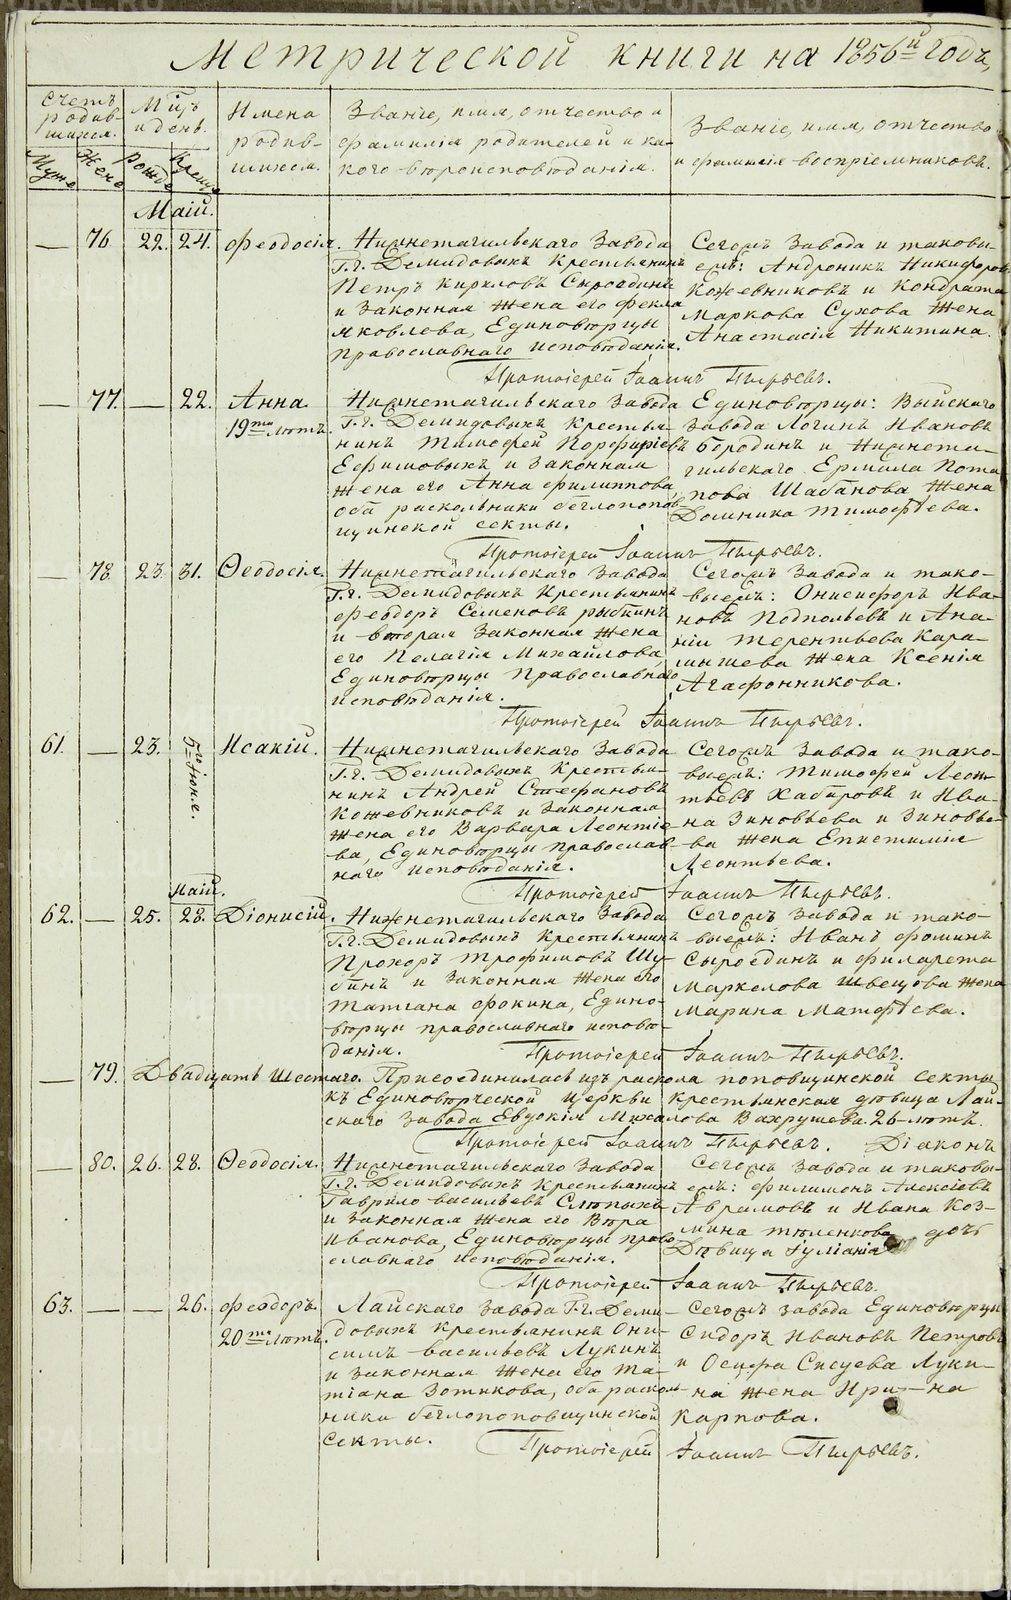 Метрической книги на 1856й годъ,
Счетъ родив-шихся.
Муже
Жене
Мцъ и день.
Рожде
Креще
Имена родив-шихся.
Званіе, имя, отчество и фамилія родителей и ка-кого вѣроисповѣданія.
Званіе, имя, отчество и фамилія воспріемниковъ.
Маій.
— 76. 22. 24. Феодосія.
Нижнетагильскаго Завода
Г.г. Демидовыхъ Крестьянинъ
Петръ Кириловъ Сыроединъ
и законная жена его Фекла
Яковлева, Единовѣрцы
Православнаго исповѣданія.
Сегожъ Завода и таковы-
ежъ: Андроникъ Никифоровъ
Кожевниковъ и Кондрата
Маркова Сухова жена
Анастасія Никитина.
Протоіерей Іоаннъ Пырьевъ.
— 77. — 22. Анна
19ти лѣтъ.
Нижнетагильскаго Завода
Г.г. Демидовыхъ Крестья-
нинъ Тимофей Порфирьевъ
Ефимовыхъ и Законная
жена его Анна Филиппова
оба раскольники беглопопов-
щинской секты.
Единовѣрцы: Выйскаго
Завода Логинъ Ивановъ
Бородинъ и Нижнета-
гильскаго Ермила Пота
пова Шабанова жена
Домника Тимофѣева.
Протоіерей Іоаннъ Пырьевъ.
— 78. 23. 31. Ѳеодосія.
Нижнетагильскаго Завода
Г.г. Демидовыхъ Крестьянинъ
Феодоръ Семеновъ рыбинъ
и вторая Законная жена
его Пелагія Михайлова,
Единовѣрцы Православнаго
исповѣданія.
Сегожъ Завода и тако-
выежъ: Онисифоръ Ива-
новъ Подпольевъ и Ана-
ніи Терентьева Кара-
мышева жена Ксенія
Агафонникова.
Протоіерей Іоаннъ Пырьевъ.
61. — 23. 5го іюня. Исакій.
Нижнетагильскаго Завода
Г.г. Демидовыхъ Крестья-
нинъ Андрей Стефановъ
Кожевниковъ и Законная
жена его Варвара Леонтіе-
ва, Единовѣрцы православ-
наго исповѣданія.
Сегожъ Завода и тако-
выежъ: Тимофей Леон-
тьевъ Хабаровъ и Ива-
на Зиновьева и Зиновье-
ва жена Епистимія
Леонтьева.
Протоіерей Іоаннъ Пырьевъ.
маій.
62. — 25. 28. Діонисій.
Нижнетагильскаго Завода
Г.г. Демидовыхъ Крестьянинъ
Прохоръ Трофимовъ Шу-
бинъ и Законная жена его
Татіана Фокина, Едино-
вѣрцы православнаго исповѣ-
данія.
Сегожъ Завода и тако-
выежъ: Иванъ Фоминъ
Сыроединъ и Филарета
Маркелова Швецова жена
Марина Матфѣева.
Протоіерей Іоаннъ Пырьевъ.
— 79. Двадцать Шестаго. Присоединилась изъ раскола поповщинской секты
къ Единовѣрческой Церкви Крестьянская дѣвица Лай-
скаго Завода Евдокія Михалова Вахрушева 26 лѣтъ.
Протоіерей Іоаннъ Пырьевъ. Діаконъ
— 80. 26. 28. Ѳеодосія.
Нижнетагильскаго Завода
Г.г. Демидовыхъ Крестьянинъ
Гаврило Васильевъ Слѣпыхъ
и законная жена его Вѣра
Иванова, Единовѣрцы право
славнаго исповѣданія.
Сегожъ Завода и таковы-
ежъ: Филимонъ Алексѣевъ
Аврамовъ и Ивана Коз-
мина Тѣленкова дочь
Дѣвица Іуліанія
Протоіерей Іоаннъ Пырьевъ.
63. — — 26. Феодоръ.
20ти лѣтъ.
Лайскаго Завода Г.г. Деми-
довыхъ Крестьянинъ Они-
симъ Васильевъ Лукинъ
и Законная жена его Та-
тіана Зотикова, оба расколь-
ники беглопоповщинской
Секты.
Сегожъ завода Единовѣрцы
Сидоръ Ивановъ Петровъ
и Осифа Сысуева Луки-
на жена Ири—на
Карпова.
Протоіерей Іоаннъ Пырьевъ.
METRIKI.GASO-URAL.RU